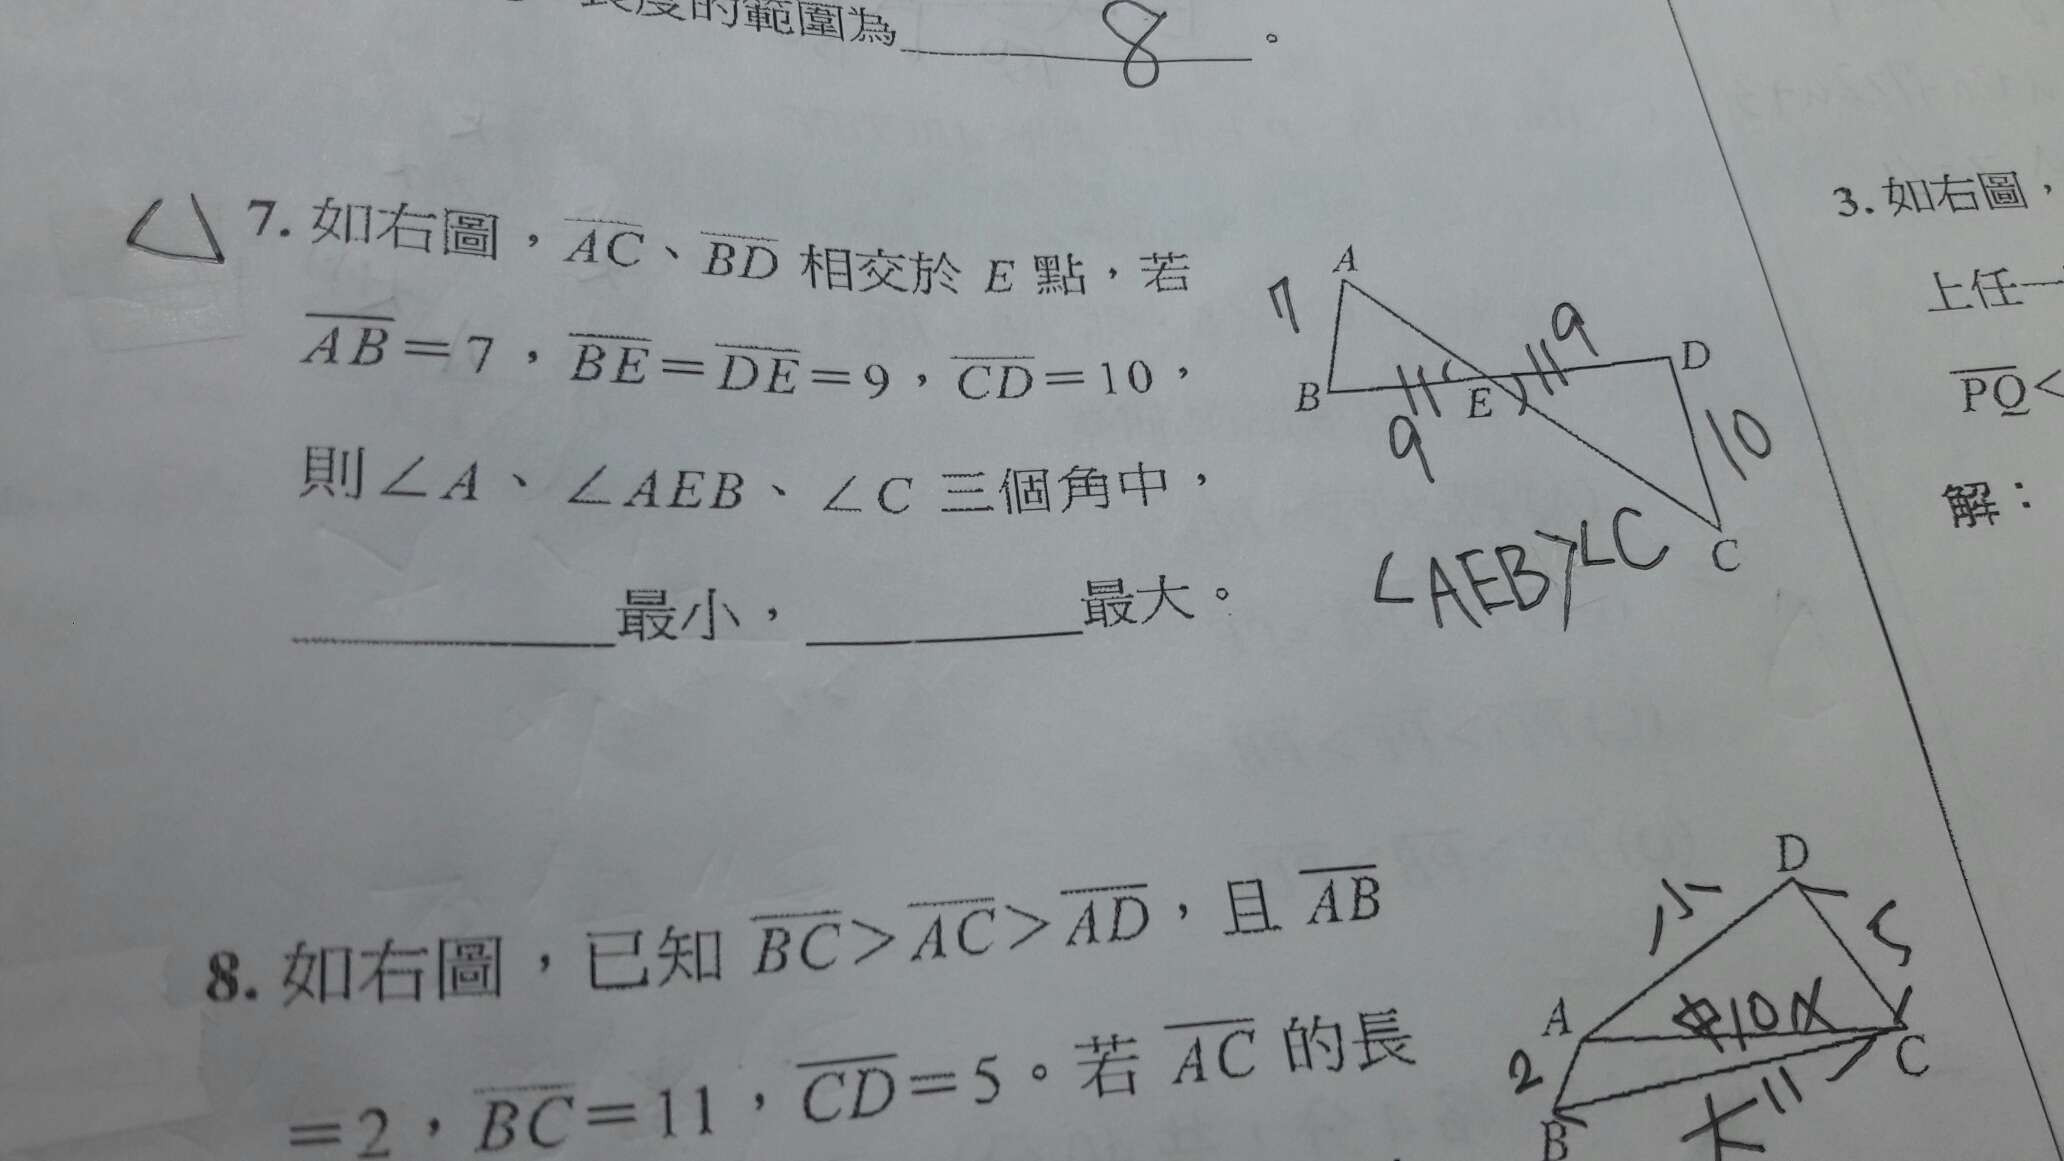 長度的範圍為 8 。
7. 如右圖，AC、BD 相交於 E 點，若
AB＝7，BE＝DE＝9，CD＝10，
則∠A、∠AEB、∠C 三個角中，
最小，最大。
A
7
B
9
E
9
D
10
C
∠AEB>∠C
8. 如右圖，已知 BC＞AC＞AD，且 AB
＝2，BC＝11，CD＝5。若 AC 的長
D
小
5
A
中10
C
2
大11
B
3. 如右圖，
上任一
PQ＜
解：